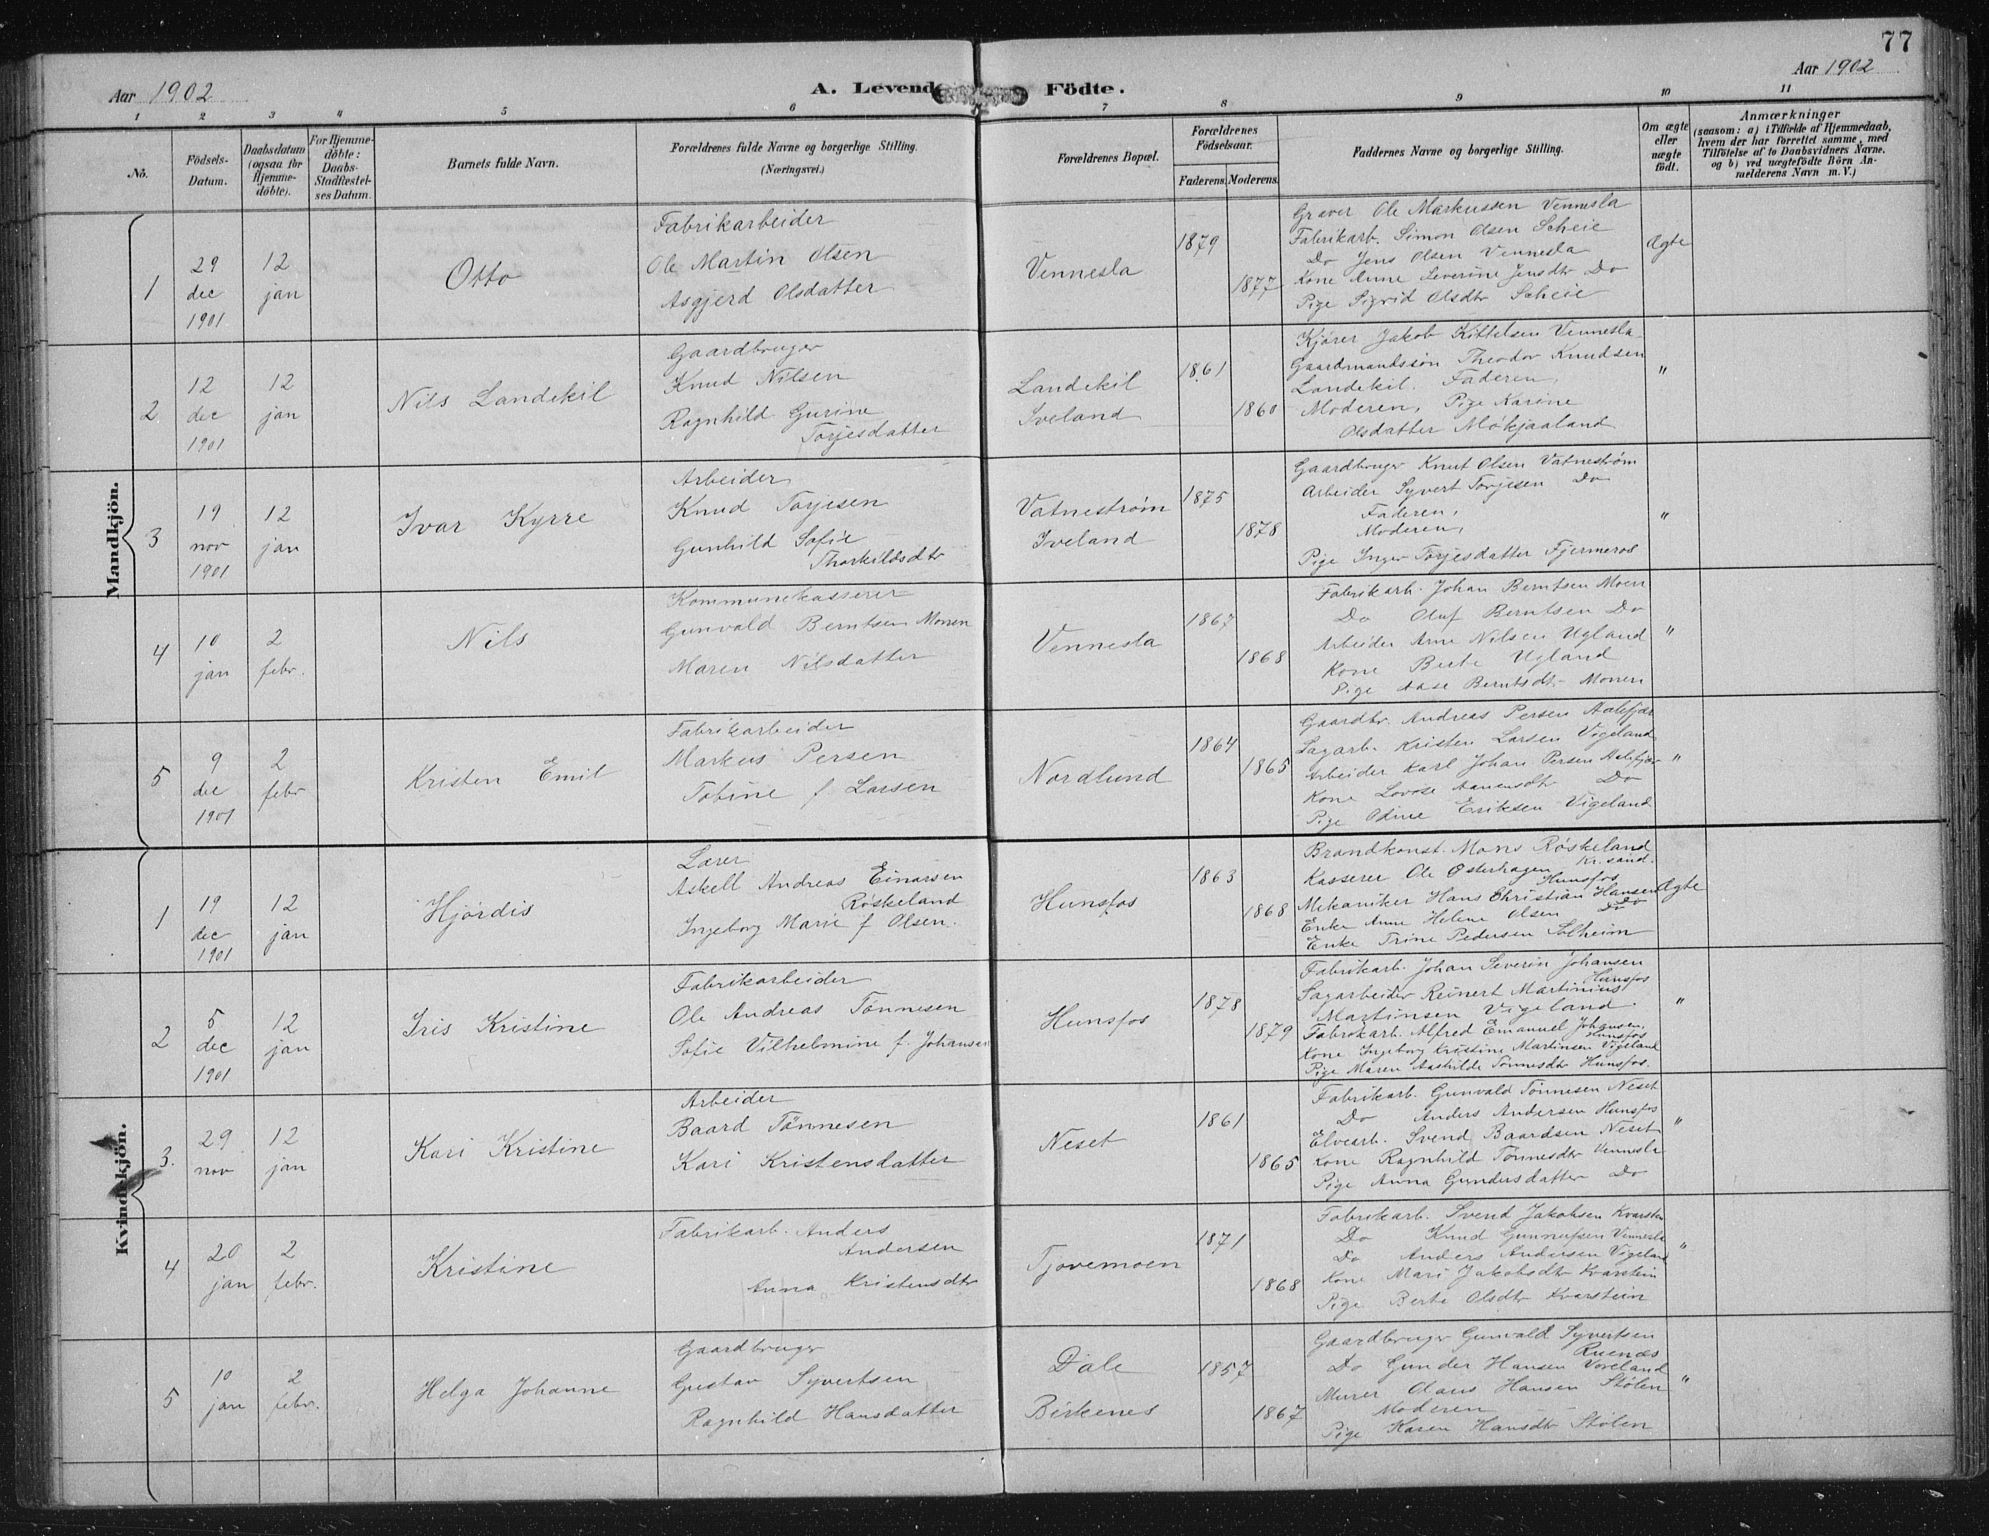 77
Aar 1902
A. Levende Födte.
Aar 1902
1 2 3 4 5 6 7 8 9 10 11
No.
Födsels-Datum.
Daabsdatum (ogsaa for Hjemme-döbte).
For Hjemme-döbte: Daabs-Stadfæstel-ses Datum.
Barnets fulde Navn.
Forældrenes fulde Navne og borgerlige Stilling.
(Næringsvei.)
Forældrenes Bopæl.
Forældrenes Födselsaar.
Faderens. Moderens.
Faddernes Navne og borgerlige Stilling.
Om ægte eller uægte födt.
Anmærkninger
(saasom: a) i Tilfælde af Hjemmedaab, hvem der har forrettet samme, med Tilföielse af to Daabsvidners Navne, og b) ved uægtefödte Börn Anmelderens Navn m. V.)
Mandkjön.
1
29 dec 1901
12 jan
Otto
Fabrikarbeider
Ole Martin Olsen
Asgjerd Olsdatter
Vennesla
1879
1877
Graver Ole Markussen Vennesla
Fabrikarb. Simon Olsen Scheie
Do Jens Olsen Vennesla
Kone Anne Severine Jensdtr Do
Pige Sigrid Olsdtr Scheie
Ægte
2
12 dec 1901
12 jan
Nils Landekil
Gaardbruger
Knud Nilsen
Ragnhild Gurine
Torjesdatter
Landekil
Iveland
1861
1860
Kjører Jakob Kittelsen Vennesla
Gaardmandssøn Theodor Knudsen
Landekil. Faderen,
Moderen, Pige Karine
Olsdatter Møkjaaland
"
3
19 nov 1901
12 jan
Ivar Kyrre
Arbeider
Knud Torjesen
Gunhild Sofie
Thorkildsdtr
Vatnestrøm
Iveland
1875
1878
Gaardbruger Knut Olsen Vatnestrøm
Arbeider Syvert Torjesen Do
Faderen,
Moderen,
Pige Inger Torjesdatter Fjermeros
"
4
10 jan
2 febr.
Nils
Kommunekasserer
Gunvald Berntsen Monen
Maren Nilsdatter
Vennesla
1867
1868
Fabrikarb. Johan Berntsen Moen
Do Oluf Berntsen Do
Arbeider Arne Nilsen Ugland
Kone Berte Ugland
Pige Aase Berntsdt. Monen
"
5
9 dec 1901
2 febr
Kristen Emil
Fabrikarbeider
Markus Persen
Tobine f. Larsen
Nordlund
1864
1865
Gaardbr. Andreas Persen Aalefjær
Sagarb. Kristen Larsen Vigeland
Arbeider Karl Johan Persen Aalefjær
Kone Lovise Aanensdtr Do
Pige Odine Eriksen Vigeland
"
Kvindekjön.
1
19 dec 1901
12 jan
Hjördis
Lærer
Askell Andreas Einarsen
Røskeland
Ingeborg Marie f Olsen.
Hunsfos
1863
1868
Brandkonst. Mons Røskeland
Kr.sand.
Kasserer Ole Østerhagen
Hunsfos
Mekaniker Hans Christian Hansen
Do
Enke Anne Helene Olsen Do
Enke Trine Pedersen Solheim
Ægte
2
5 dec 1901
12 jan
Iris Kristine
Fabrikarbeider
Ole Andreas Tönnesen
Sofie Vilhelmine f. Johansen
Hunsfos
1878
1879
Fabrikarb. Johan Severin Johansen
Hunsfos
Sagarbeider Reinert Martinius
Martinsen Vigeland
Fabrikarb. Alfred Emanuel Johansen,
Hunsfos
Kone Ingeborg Kristine Martinsen Vigeland
Pige Maren Aashilde Tönnesdtr Hunsfos.
"
3.
29 nov
12 jan
Kari Kristine
Arbeider
Baard Tönnesen
Kari Kristensdatter
Neset
1861
1865
Fabrikarb. Gunvald Tönnesen Neset
Do Anders Andersen Hunsfos
Elvearb. Svend Baardsen Neset
Kone Ragnhild Tönnesdtr Vennesla
Pige Anna Gundersdatter Do
"
4
20 jan
2 febr.
Kristine
Fabrikarb. Anders
Andersen
Anna Kristensdtr
Tjovemoen
1871
1868
Fabrikarb. Svend Jakobsen Kvarsten
Do Knud Gunnufsen Vennesla
Do Anders Andersen Vigeland
Kone Mari Jakobsdtr Kvarstein
Pige Berte Olsdtr Kvarstein
"
5
10 jan
2 febr.
Helga Johanne
Gaardbruger
Gustav Syvertsen
Ragnhild Hansdatter
Dale
Birkenes
1857
1867
Gaardbruger Gunvald Syvertsen
Ruenæs
Do Gunder Hansen Voreland
Murer Olaus Hansen Stölen
Moderen
Pige Karen Hansdtr Stölen
"